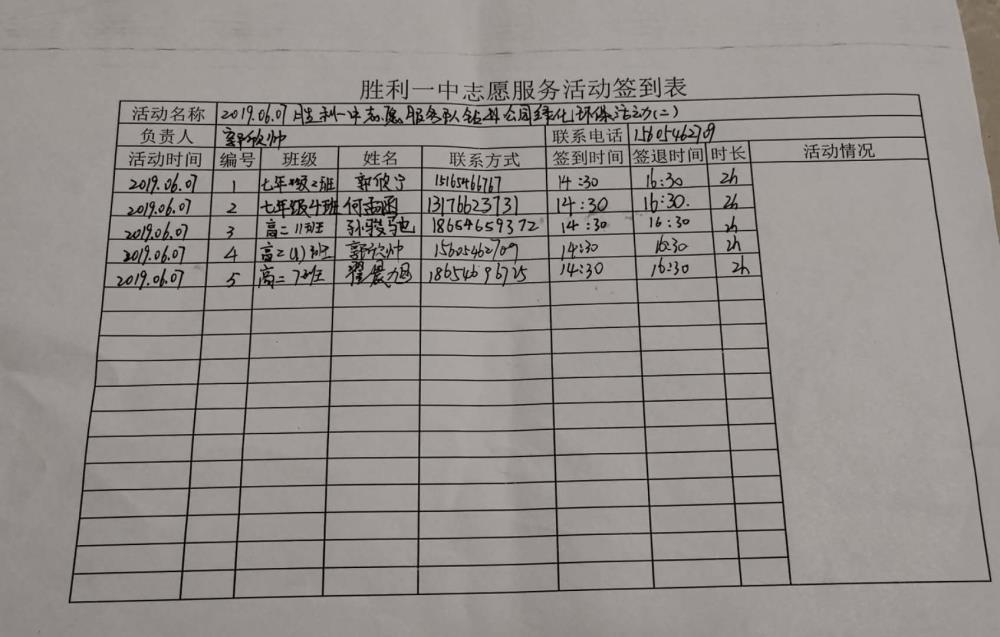 胜利一中志愿服务活动签到表
活动名称 2019.06.07胜利一中志愿服务队钻井公园绿化环保活动(二)
负责人 郭欣帅 联系电话 15605462709
活动时间 编号 班级 姓名 联系方式 签到时间 签退时间 时长 活动情况
2019.06.07 1 七年级2班 郭欣宁 15165466767 14:30 16:30 2h
2019.06.07 2 七年级4班 何孟函 13176623731 14:30 16:30. 2h
2019.06.07 3 高二11班 孙骏驰 18654659372 14:30 16:30 2h
2019.06.07 4 高二(1)班 郭欣帅 15605462709 14:30 16:30 2h
2019.06.07 5 高二7班 翟晨旭 18654696725 14:30 16:30 2h